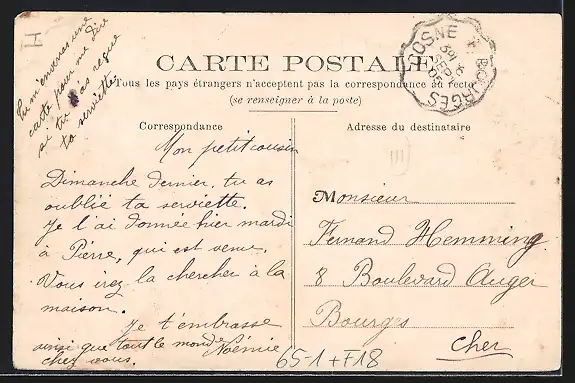 I
Tu m'enverras une
carte pour me dire
si tu as reçue
ta serviette
CARTE POSTALE
Tous les pays étrangers n'acceptent pas la correspondance au recto
(se renseigner à la poste)
COSNE
BOURGES
SEPT
05
Correspondance
Mon petit cousin
Dimanche dernier, tu as
oublié ta serviette.
Je l'ai donnée hier mardi
à Pierre, qui est venu.
Vous irez la chercher à la
maison.
Je t'embrasse
ainsi que tout le monde
chez vous. Noémie
Adresse du destinataire
Monsieur
Fernand Hemming
8 Boulevard Auger
Bourges
Cher
65-1+F18